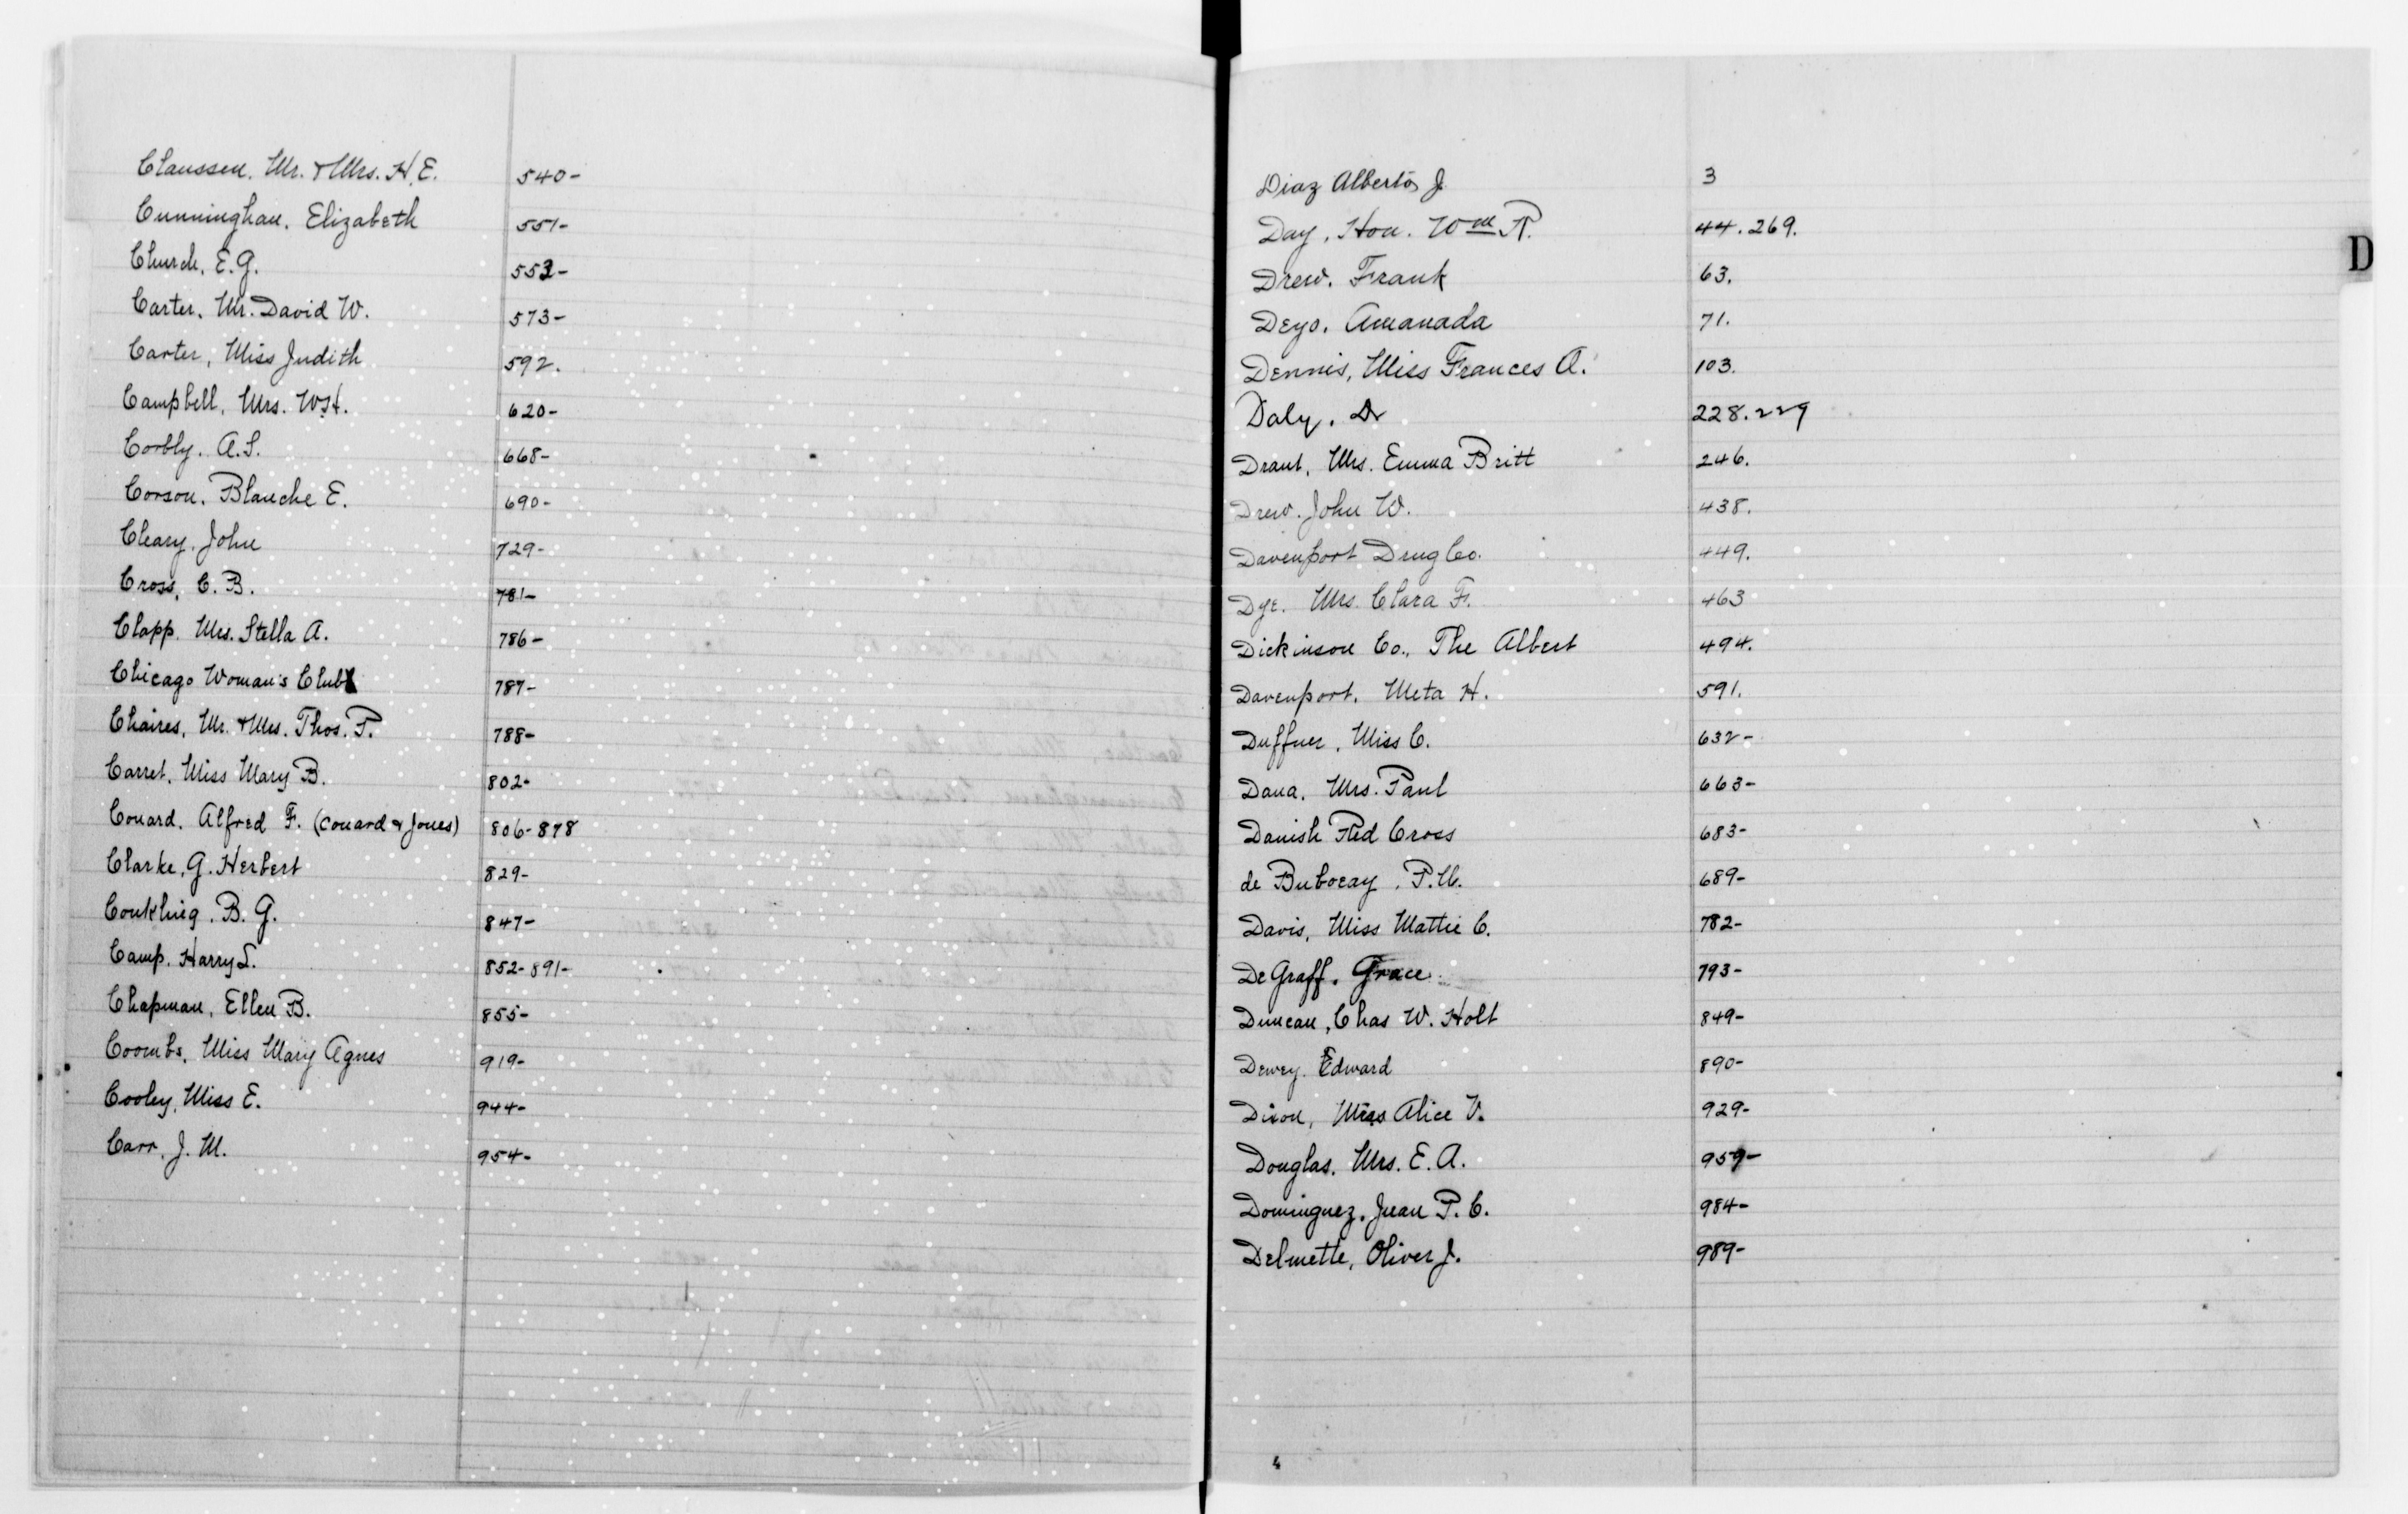 Claussen. Mr. & Mrs. H. E. 540-
Cunningham. Elizabeth 551-
Church. E. G. 553-
Carter. Mr. David W. 573-
Carter, Miss Judith 592.
Campbell, Mrs. W. H. 620-
Corbly. A. S. 668-
Corson. Blanche E. 690-
Cleary. John 729-
Cross, C. B. 781-
Clapp. Mrs. Stella A. 786-
Chicago Woman's Club 787-
Chaires, Mr. & Mrs. Thos. P. 788-
Carret. Miss Mary B. 802-
Conard. Alfred F. (Conard & Jones) 806-878
Clarke, G. Herbert 829-
Conkling. B. G. 847-
Camp. Harry S. 852-891-
Chapman, Ellen B. 855-
Coombs, Miss Mary Agnes 919-
Cooley, Miss E. 944-
Carr, J. M. 954-
D
Diaz Alberto J. 3
Day, Hon. Wm R. 44. 269.
Drew. Frank 63.
Deyo. Amanada 71.
Dennis, Miss Frances A. 103.
Daly. Dr 228. 229
Drant, Mrs. Emma Britt 246.
Drew. John W. 438.
Davenport Drug Co. 449.
Dye. Mrs. Clara F. 463
Dickinson Co., The Albert 494.
Davenport, Meta H. 591.
Duffner, Miss C. 632-
Dana. Mrs. Paul 663-
Danish Red Cross 683-
de 689-
Davis, Miss Mattie C. 782-
De Graff. Grace 793-
Duncan, Chas W. Holt 849-
Dewey. Edward 890-
Dixon, Miss Alice V. 929-
Douglas. Mrs. E. A. 959-
Dominguez, Juan P. C. 984-
Delmette, Oliver J. 989-